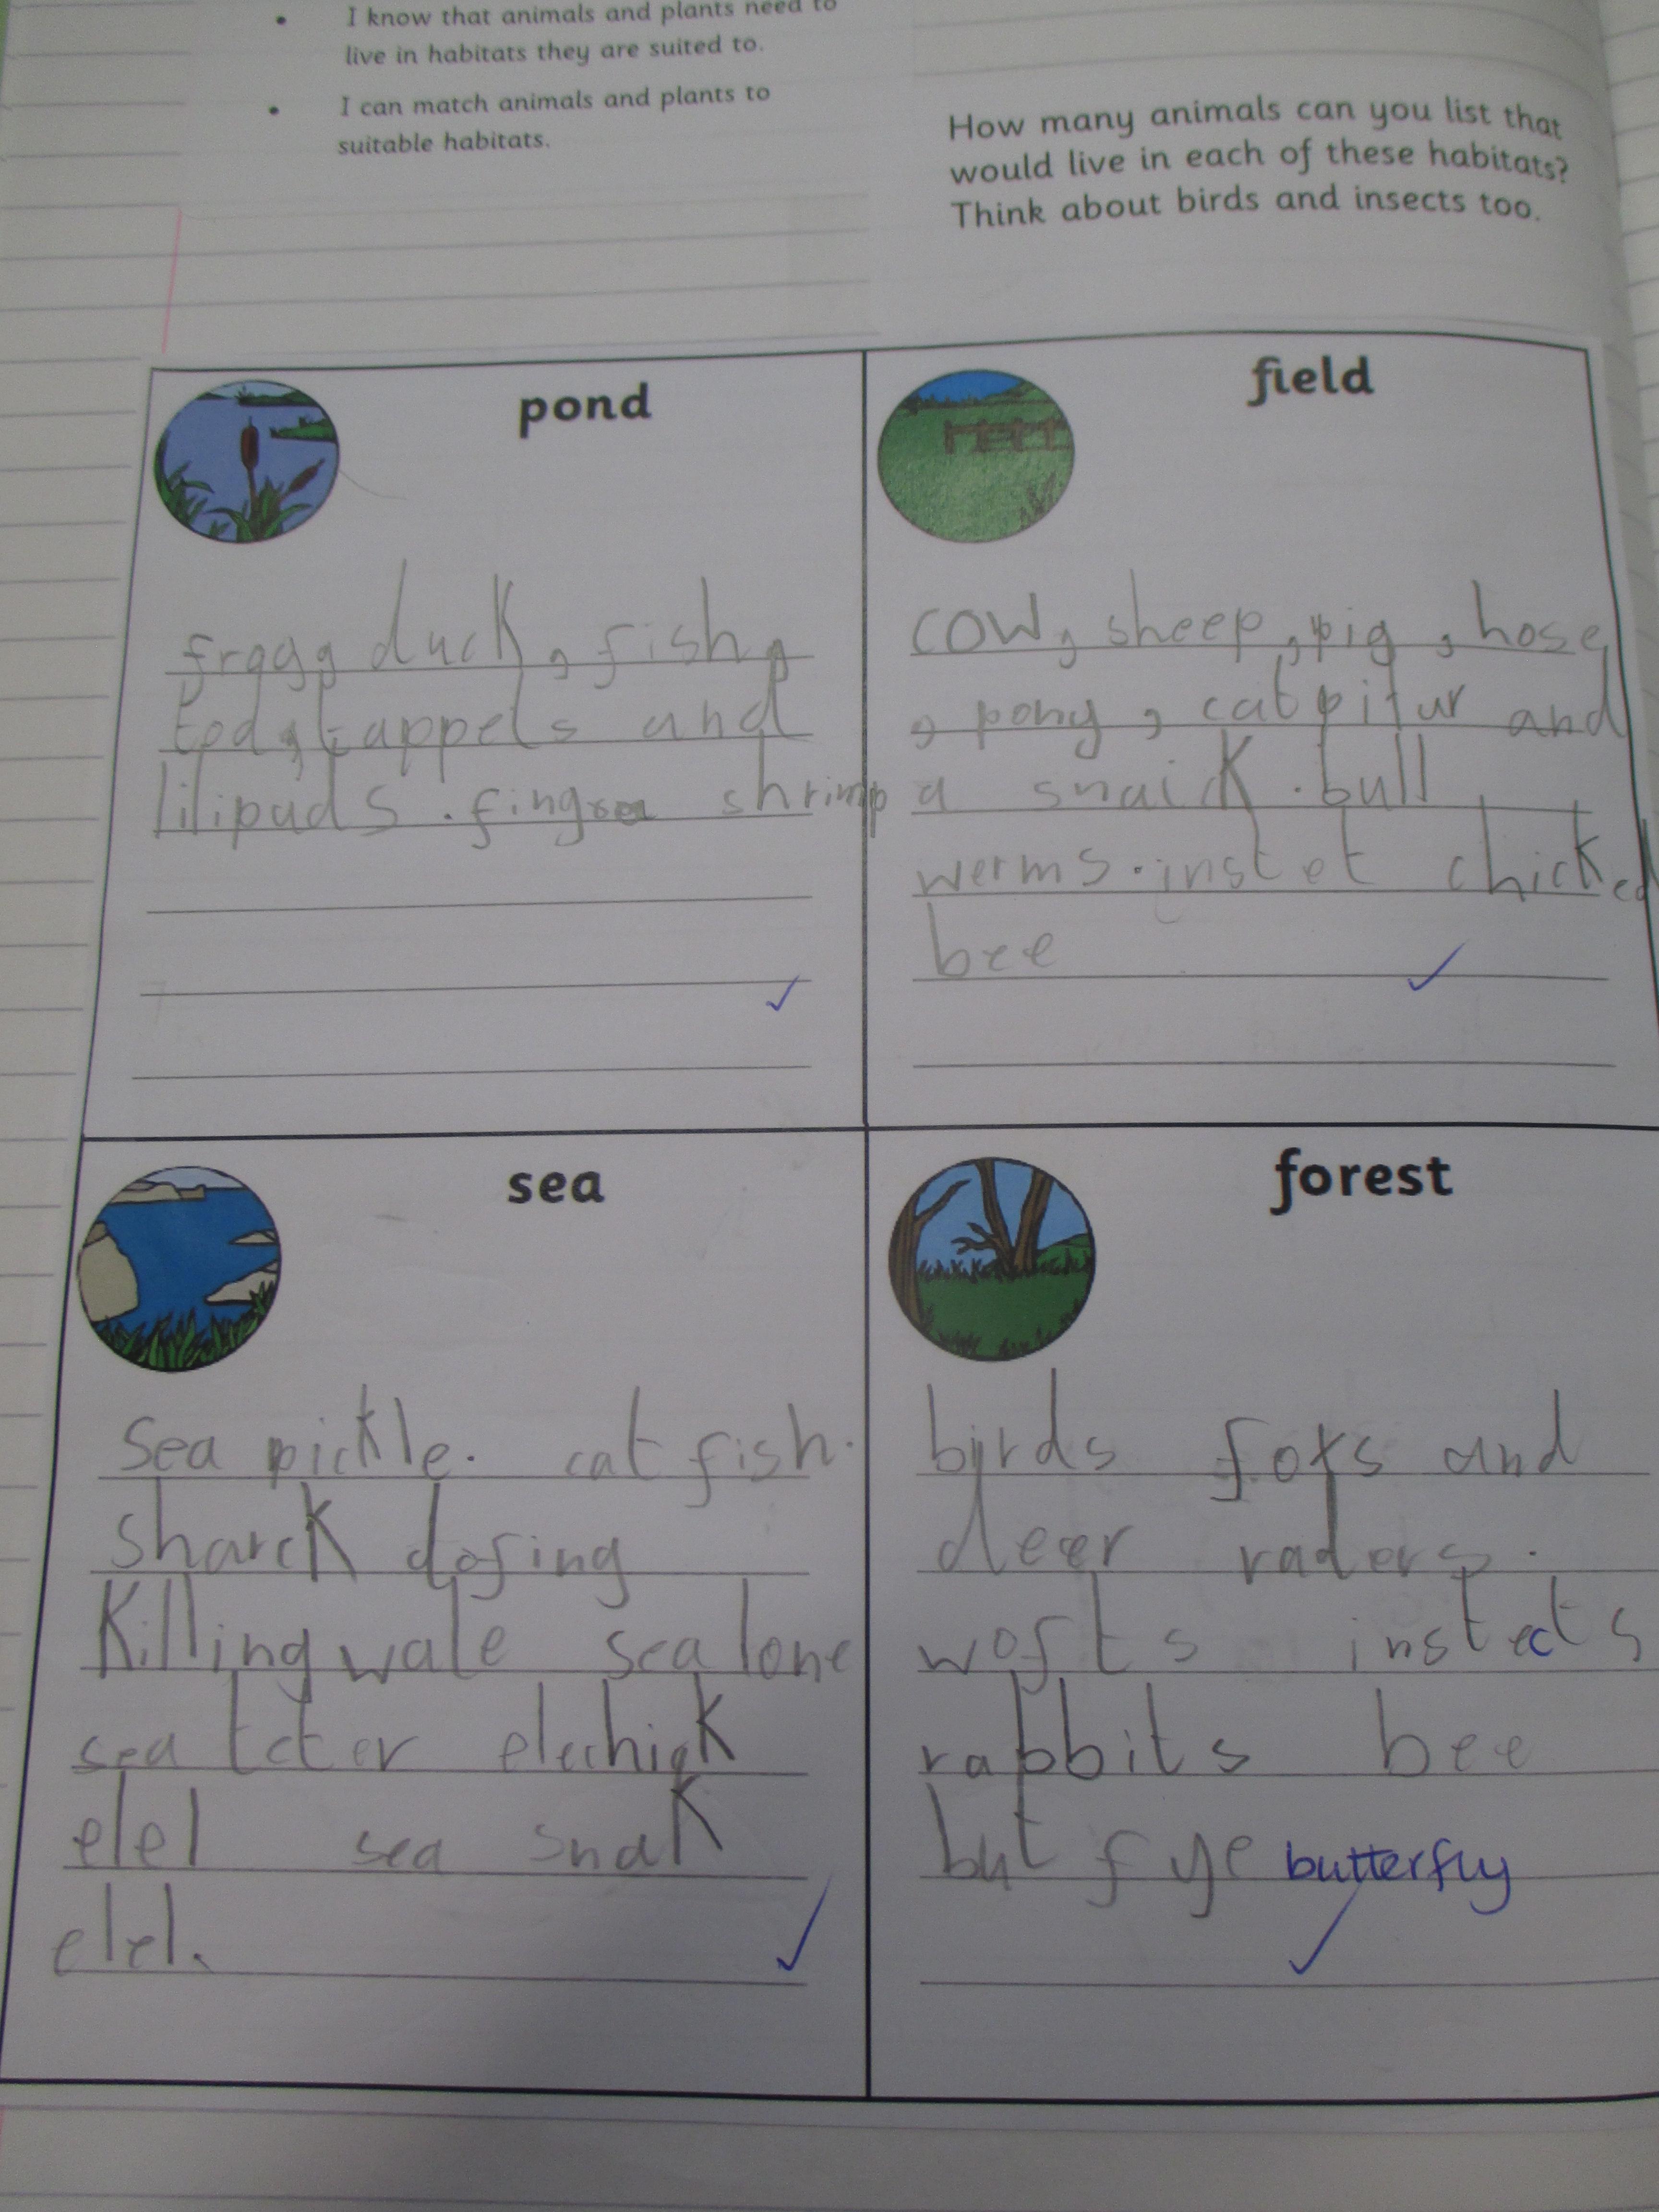 I know that animals and plants need to
live in habitats they are suited to.
I can match animals and plants to
suitable habitats.
How many animals can you list that
would live in each of these habitats?
Think about birds and insects too.
pond
frogg, duck, fish,
tod, tappels and
lilipads. shrimp
field
cow, sheep, pig, hose
, pony, catpilur and
a snaick. bull
werms. instet chicked
bee
sea
sea pickle. cat fish.
sharck dofing
Killing wale sea lone
sea
elel sea snak
elel.
forest
birds foxs and
deer raders.
wofts instects
rabbits bee
but fye butterfly